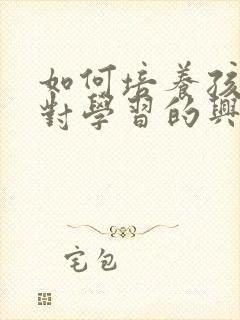 如何培養孩
對學習的興
宅包